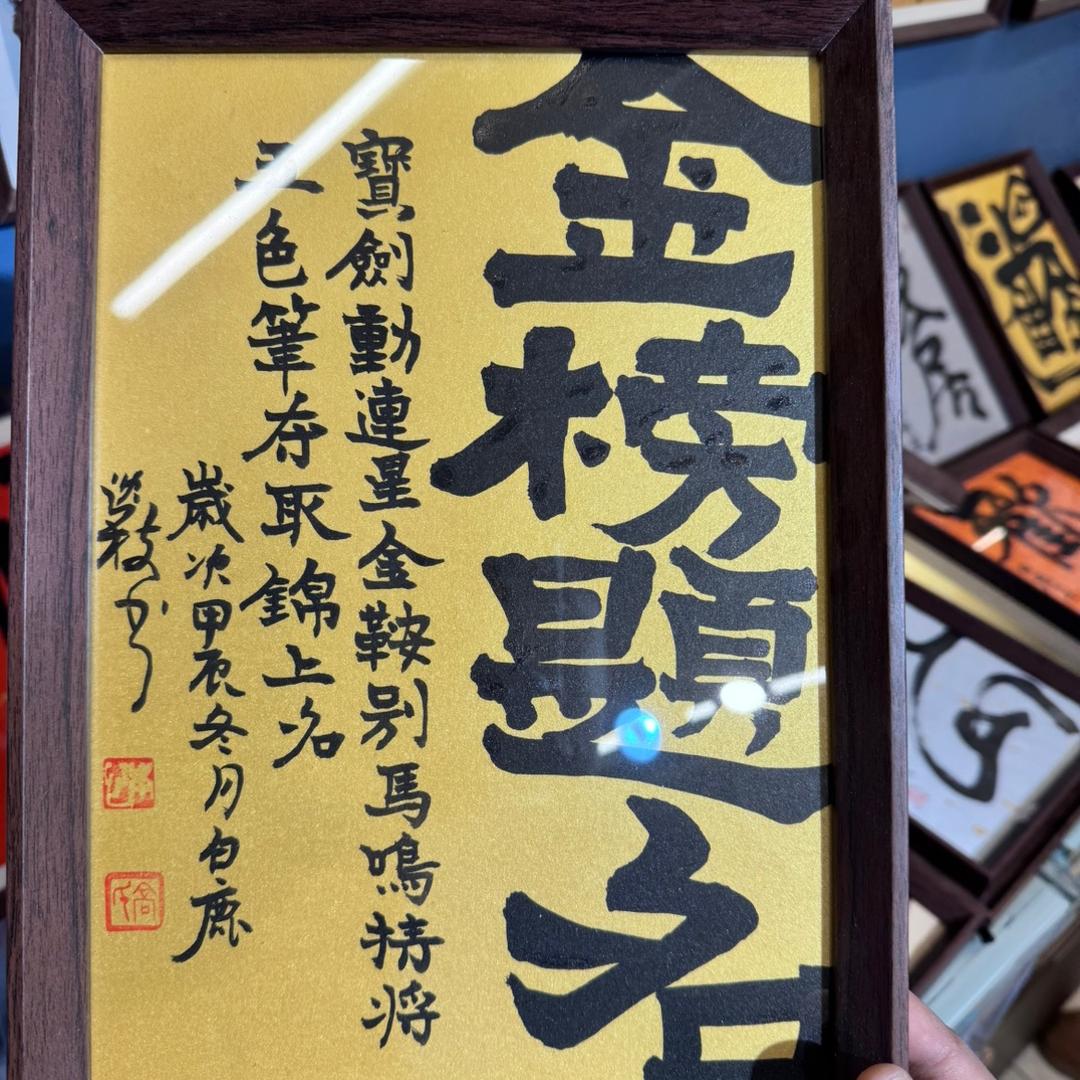 金榜題名
寶劍動連星金鞍别馬鳴持将
色筆夺取錦上名
歲次甲辰冬月白鹿